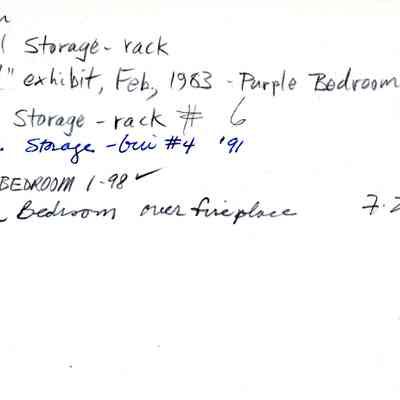 Storage - rack
" exhibit, Feb, 1983 - Purple Bedroom
Storage - rack # 6
Storage - bin #4 '91
BEDROOM 1-98 ✓
Bedroom over fireplace 7.2